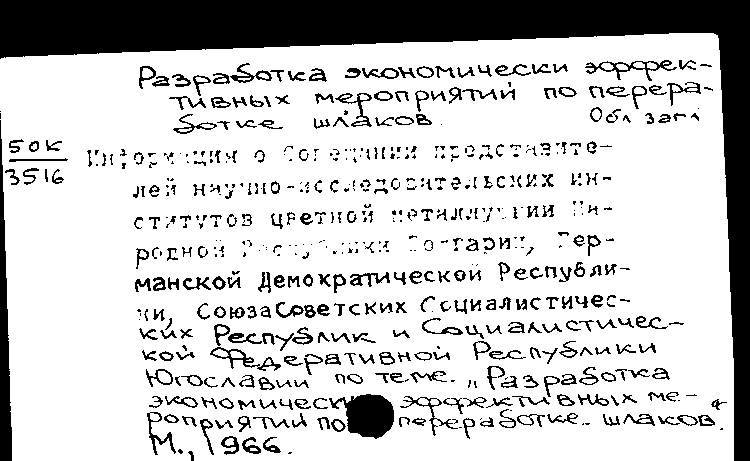 Разработка экономически эффек-
тивных мероприятий по перера-
ботке шлаков.
Обл загл
50К
3516
Информация о Совещании представите-
лей научно-исследовательских ин-
ститутов цветной металлургии На-
родной Республики Болгарии, Гер-
манской Демократической Республи-
ки, Союза Советских Социалистичес-
ких Республик и Социалистичес-
кой Федеративной Республики
Югославии по теме. „Разработка
экономически эффективных ме-
роприятий по переработке шлаков."
М., 1966.